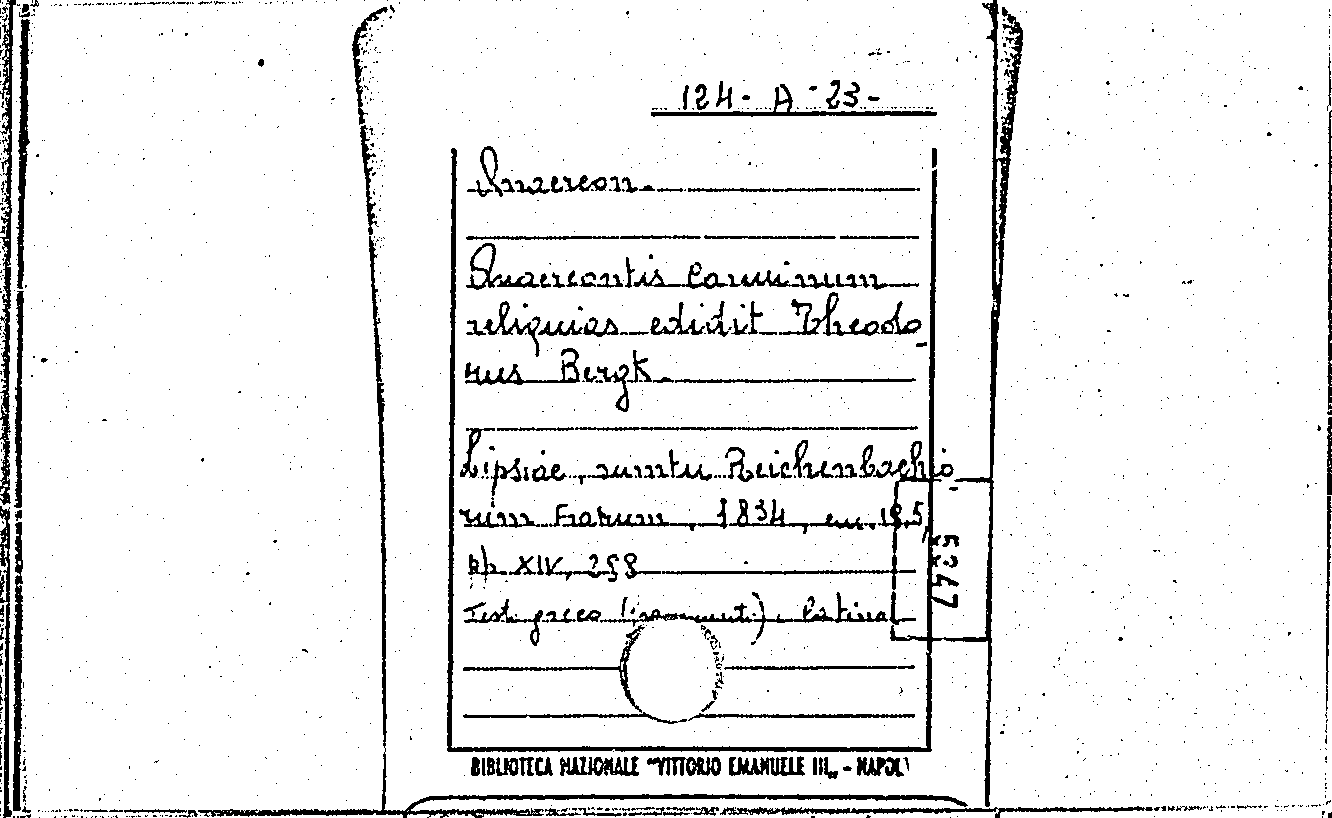 124- A -23-
Anacreon.
Anacreontis Carminum
reliquias edidit Theodo_
rus Bergk.
Lipsiae, sumtu Reichenbachio_
rum Fratrum, 1834, cm. 19,5,
pp. XIV, 298
Test. greco (framment.), latina
5247
BIBLIOTECA NAZIONALE "VITTORIO EMANUELE III„ - NAPOLI